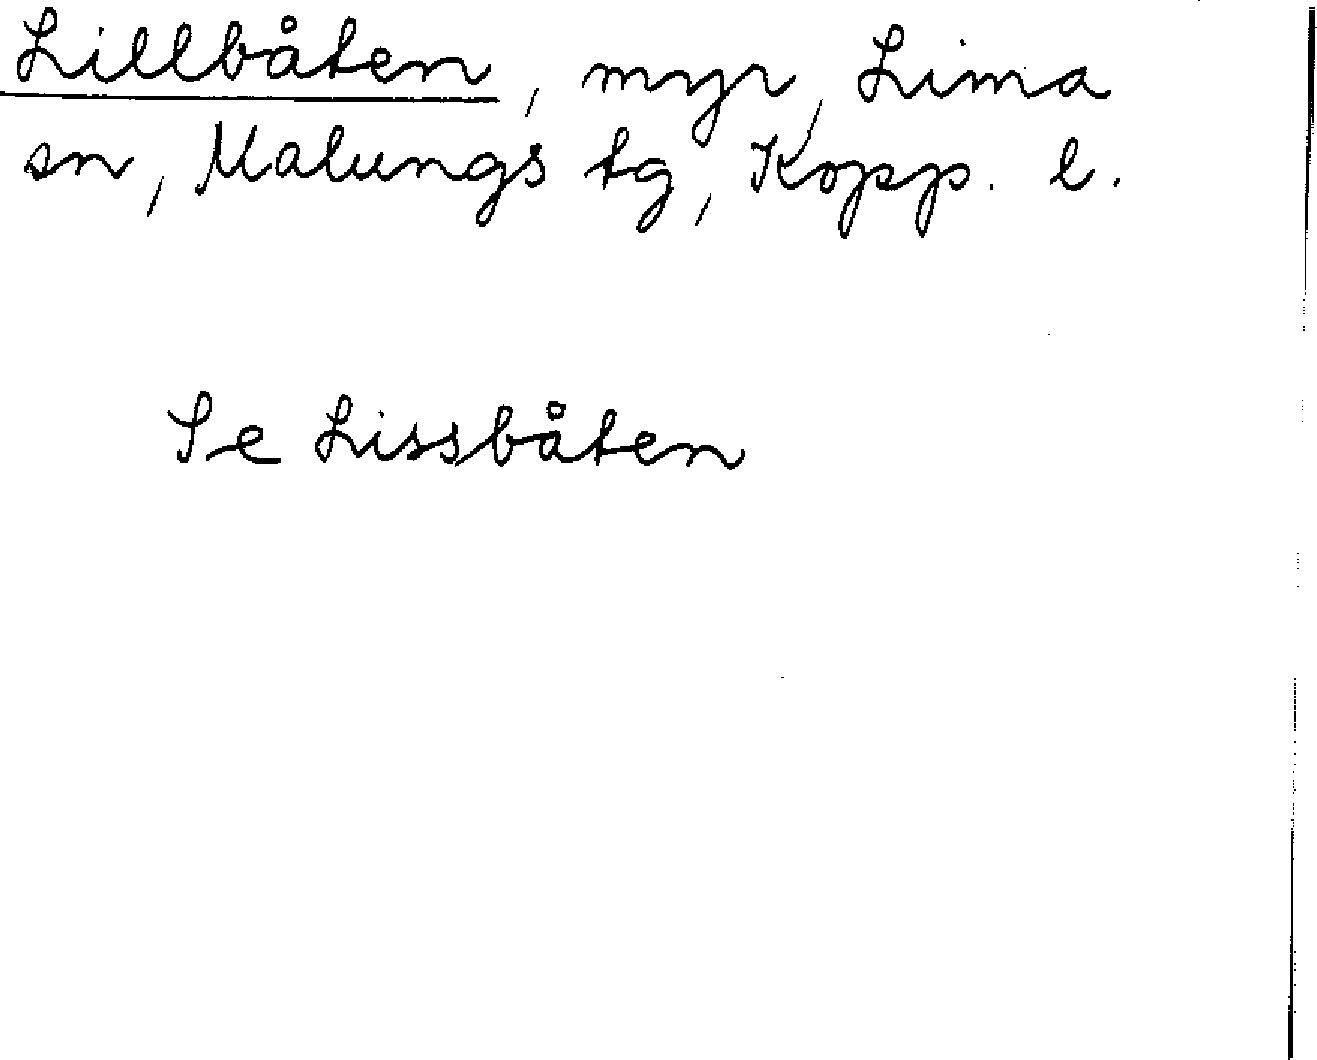 Lillbåten, myr, Lima
sn, Malungs tg, Kopp. l.
Se Lissbåten